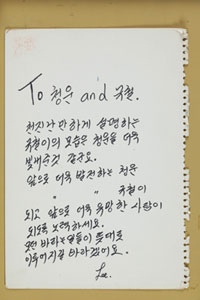 To 청운 and 국철.
천진난만하게 설명하는
국철이의 모습은 청운을 더욱
빛내준것 같군요.
앞으로 더욱 발전하는 청운
〃 〃 국철이
되고 앞으로 더욱 유망한 사람이
되도록 노력하세요.
모든 바라는 일들이 뜻대로
이루어지길 바라겠어요.
Lee.